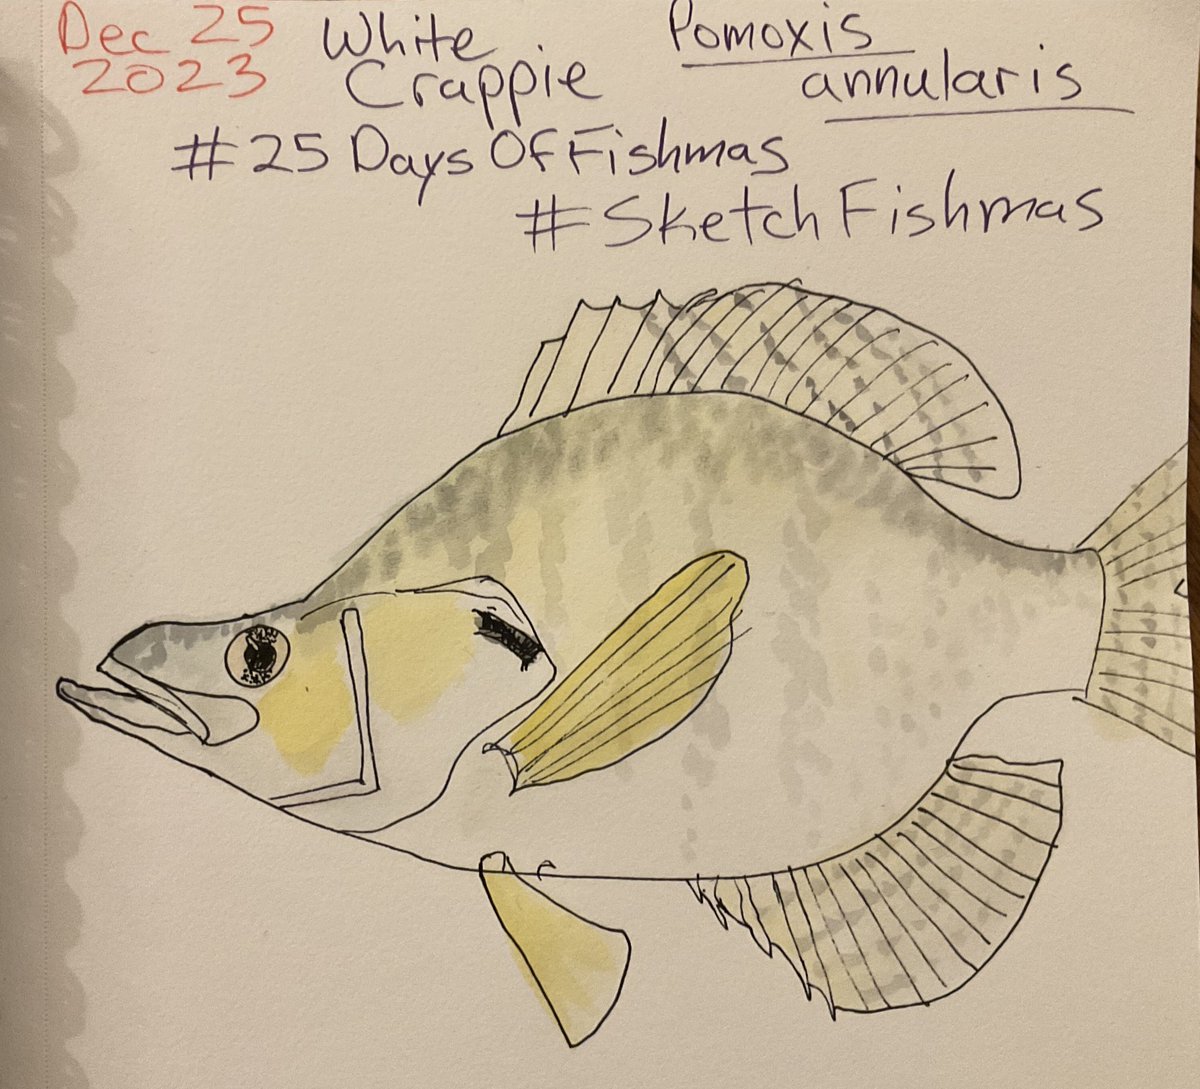 Dec 25
2023
White
Crappie
Pomoxis
annularis
#25DaysOfFishmas
#SketchFishmas